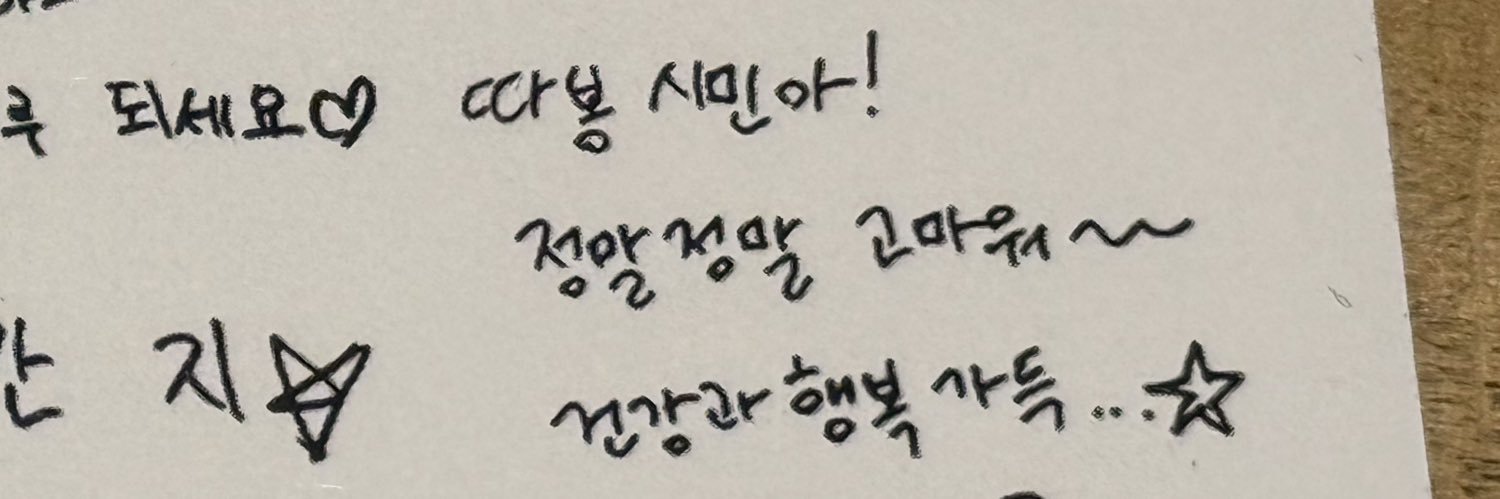 루 되세요♡ 따봉 시민아!
정말정말 고마워~~
지☆ 건강과 행복 가득...☆